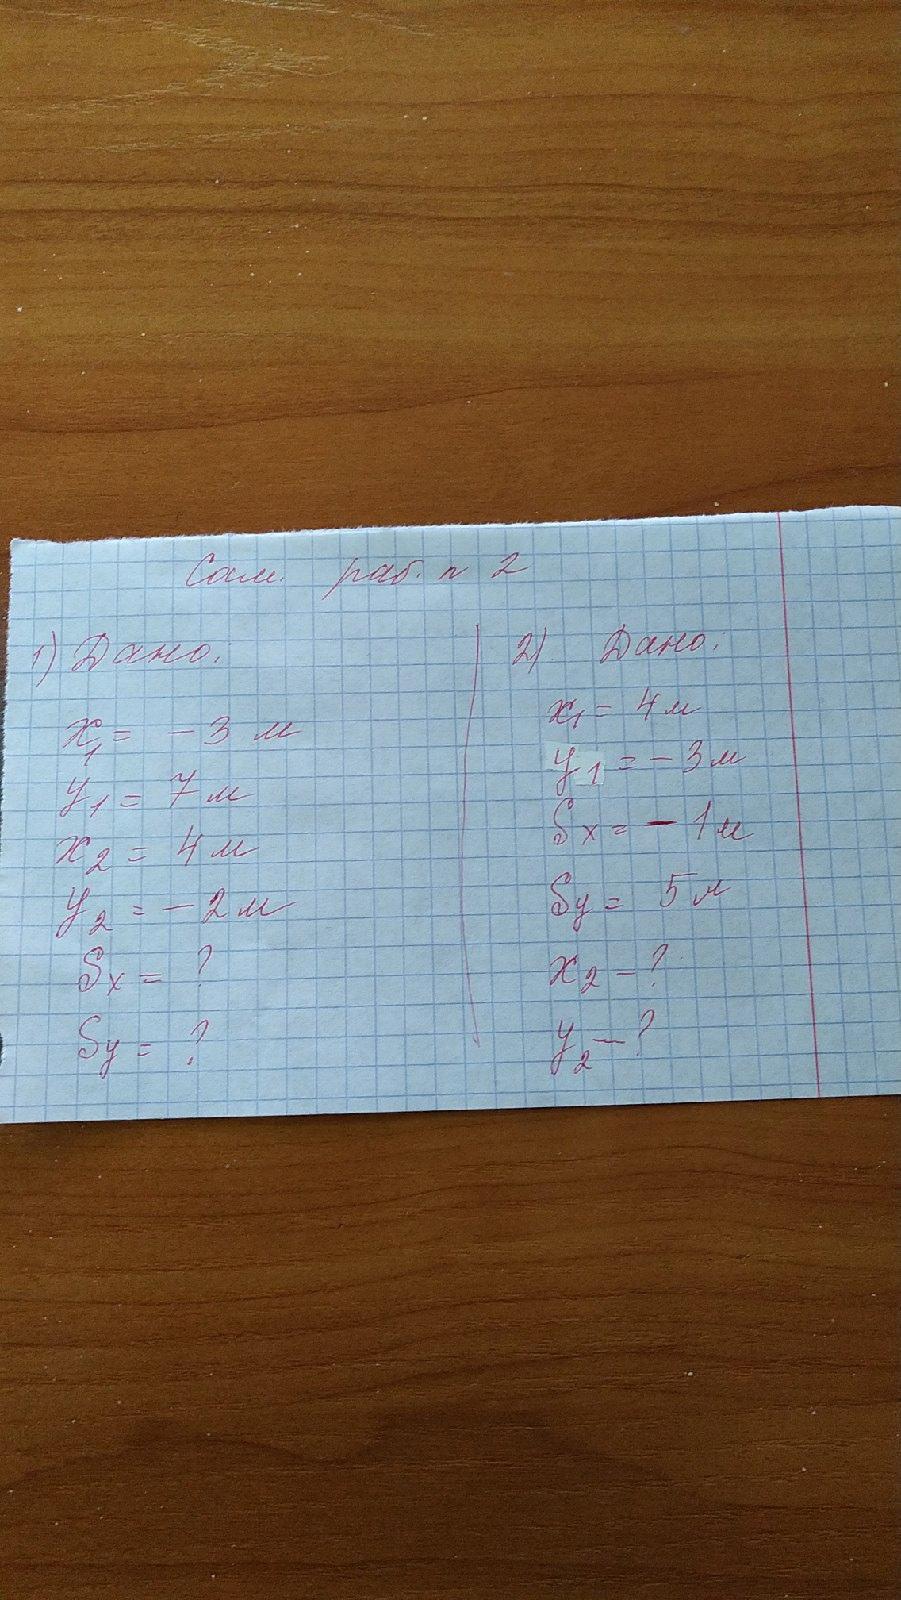 Сам. раб. n 2
1) Дано:
x₁ = -3 м
y₁ = 7 м
x₂ = 4 м
y₂ = -2 м
Sx = ?
Sy = ?
2) Дано:
x₁ = 4 м
y₁ = -3 м
Sx = -1 м
Sy = 5 м
x₂ - ?
y₂ - ?